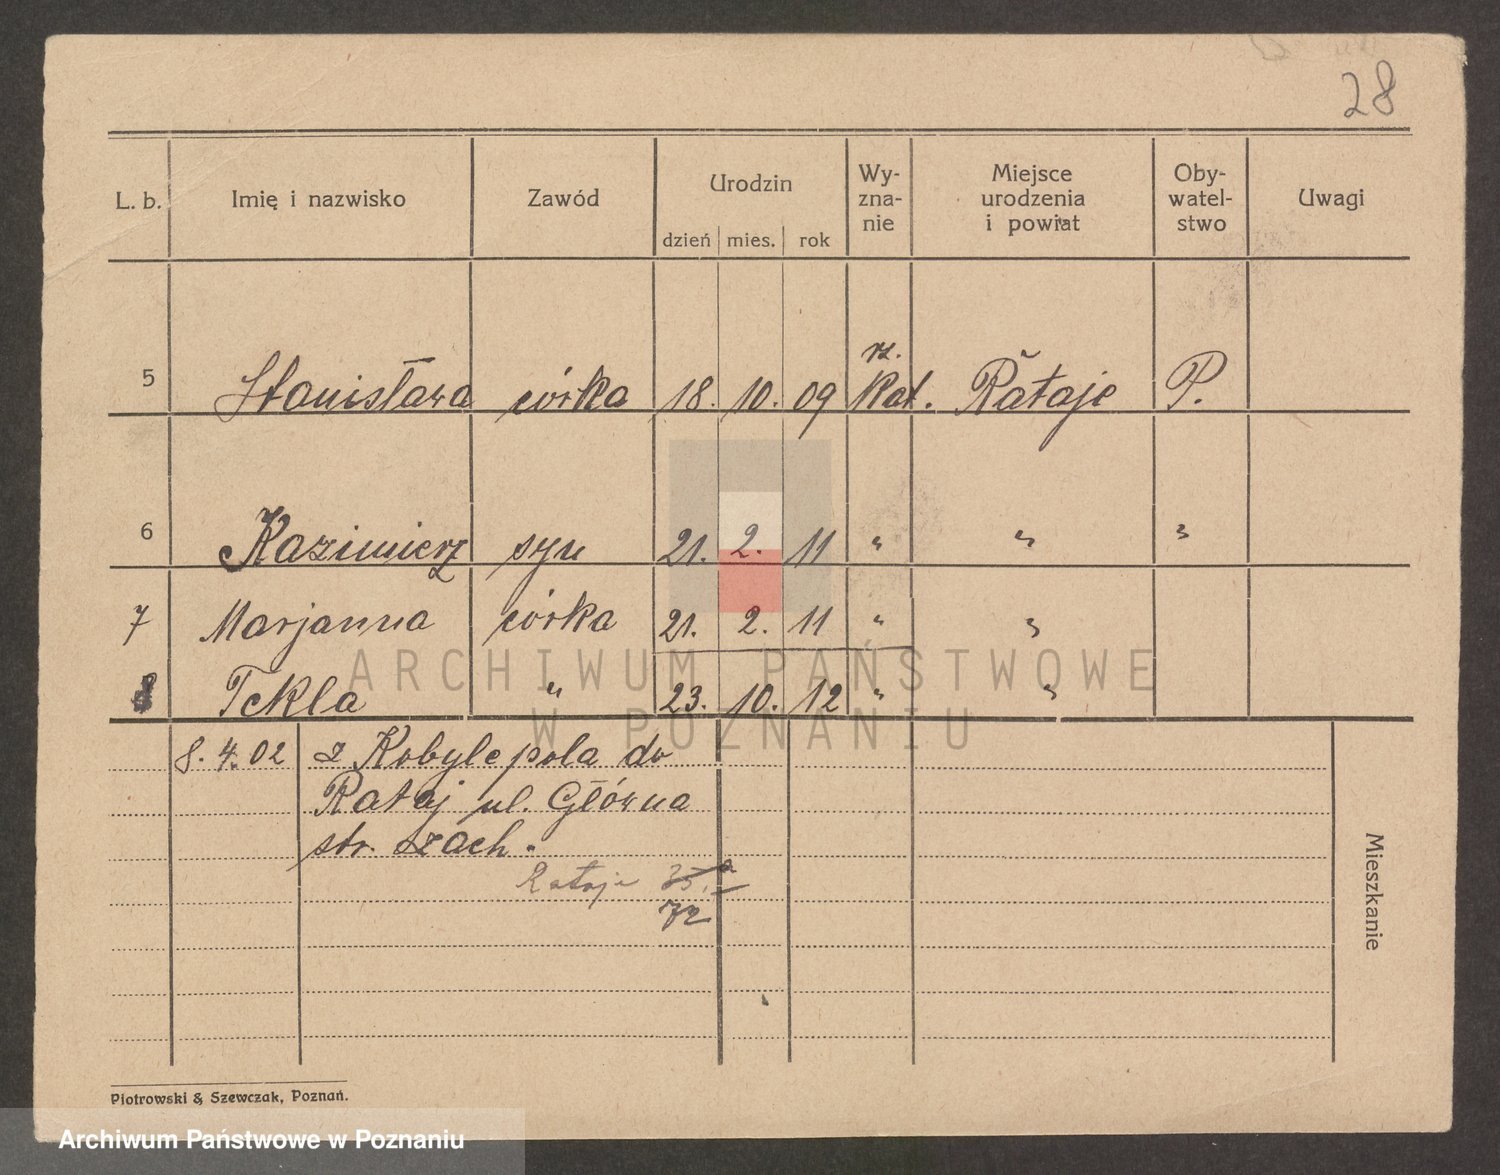 28
L. b. Imię i nazwisko Zawód Urodzin dzień mies. rok Wy- zna- nie Miejsce urodzenia i powiat Oby- watel- stwo Uwagi
rz.
5 Stanisława córka 18. 10. 09 Kat. Rataje P.
6 Kazimierz syn 21. 2. 11 " " "
7 Marjanna córka 21. 2. 11 " "
8 Tekla " 23. 10. 12 " "
ARCHIWUM PAŃSTWOWE
W POZNANIU
8. 4. 02 z Kobylepola do
Rataj ul. Główna
str. szach.
Rataje 35a
72
Mieszkanie
Piotrowski & Szewczak, Poznań.
Archiwum Państwowe w Poznaniu